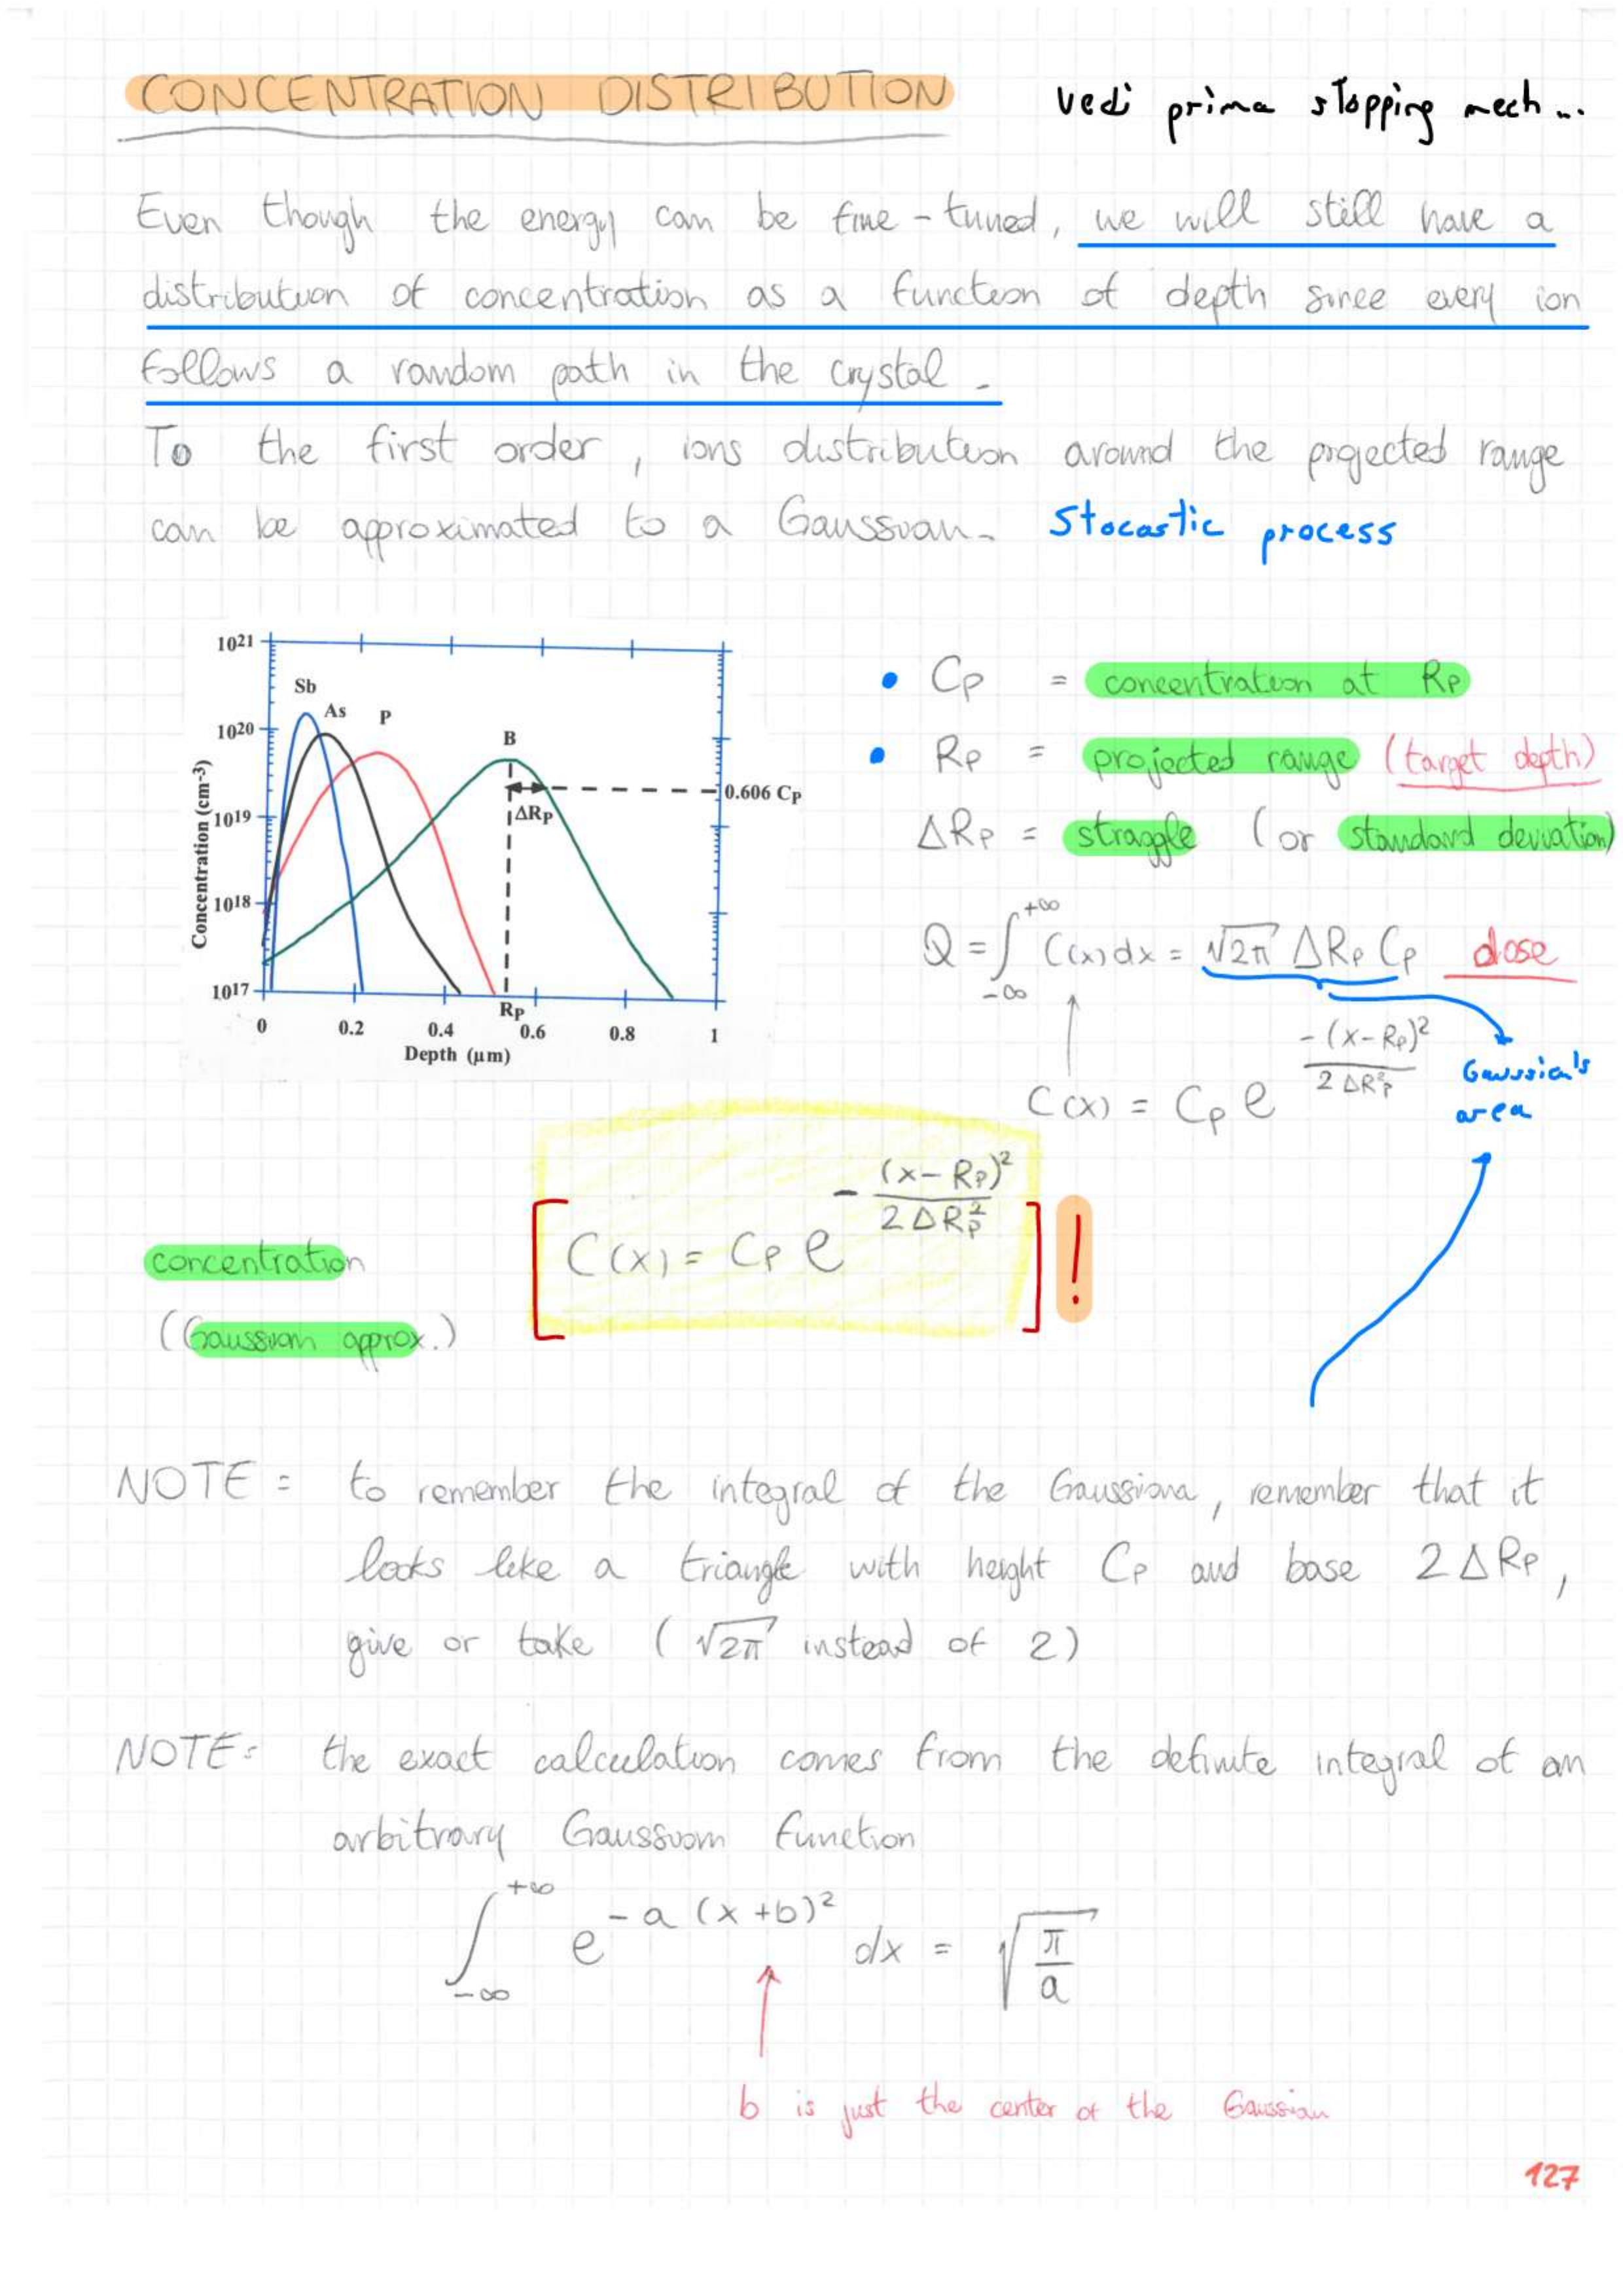 CONCENTRATION DISTRIBUTION vedi prima stopping mech...
Even though the energy can be fine-tuned, we will still have a
distribution of concentration as a function of depth since every ion
follows a random path in the crystal.
To the first order, ions distribution around the projected range
can be approximated to a Gaussian. Stocastic process
10²¹
10²⁰
10¹⁹
10¹⁸
10¹⁷
Concentration (cm⁻³)
Sb
As
P
B
ΔRp
0.606 Cp
Rp
0 0.2 0.4 0.6 0.8 1
Depth (μm)
• Cp = concentration at Rp
• Rp = projected range (target depth)
ΔRp = straggle (or standard deviation)
Q = ∫_{-∞}^{+∞} C(x) dx = √2π ΔRp Cp dose
C(x) = Cp e^{-(x-Rp)²/2ΔRp²}
Gaussian's
area
concentration
(Gaussian approx.)
[C(x) = Cp e^{-(x-Rp)²/2ΔRp²}] !
NOTE: to remember the integral of the Gaussiana, remember that it
looks like a triangle with height Cp and base 2ΔRp,
give or take (√2π instead of 2)
NOTE: the exact calculation comes from the definite integral of an
arbitrary Gaussian function
∫_{-∞}^{+∞} e^{-a(x+b)²} dx = √(π/a)
b is just the center of the Gaussian
127